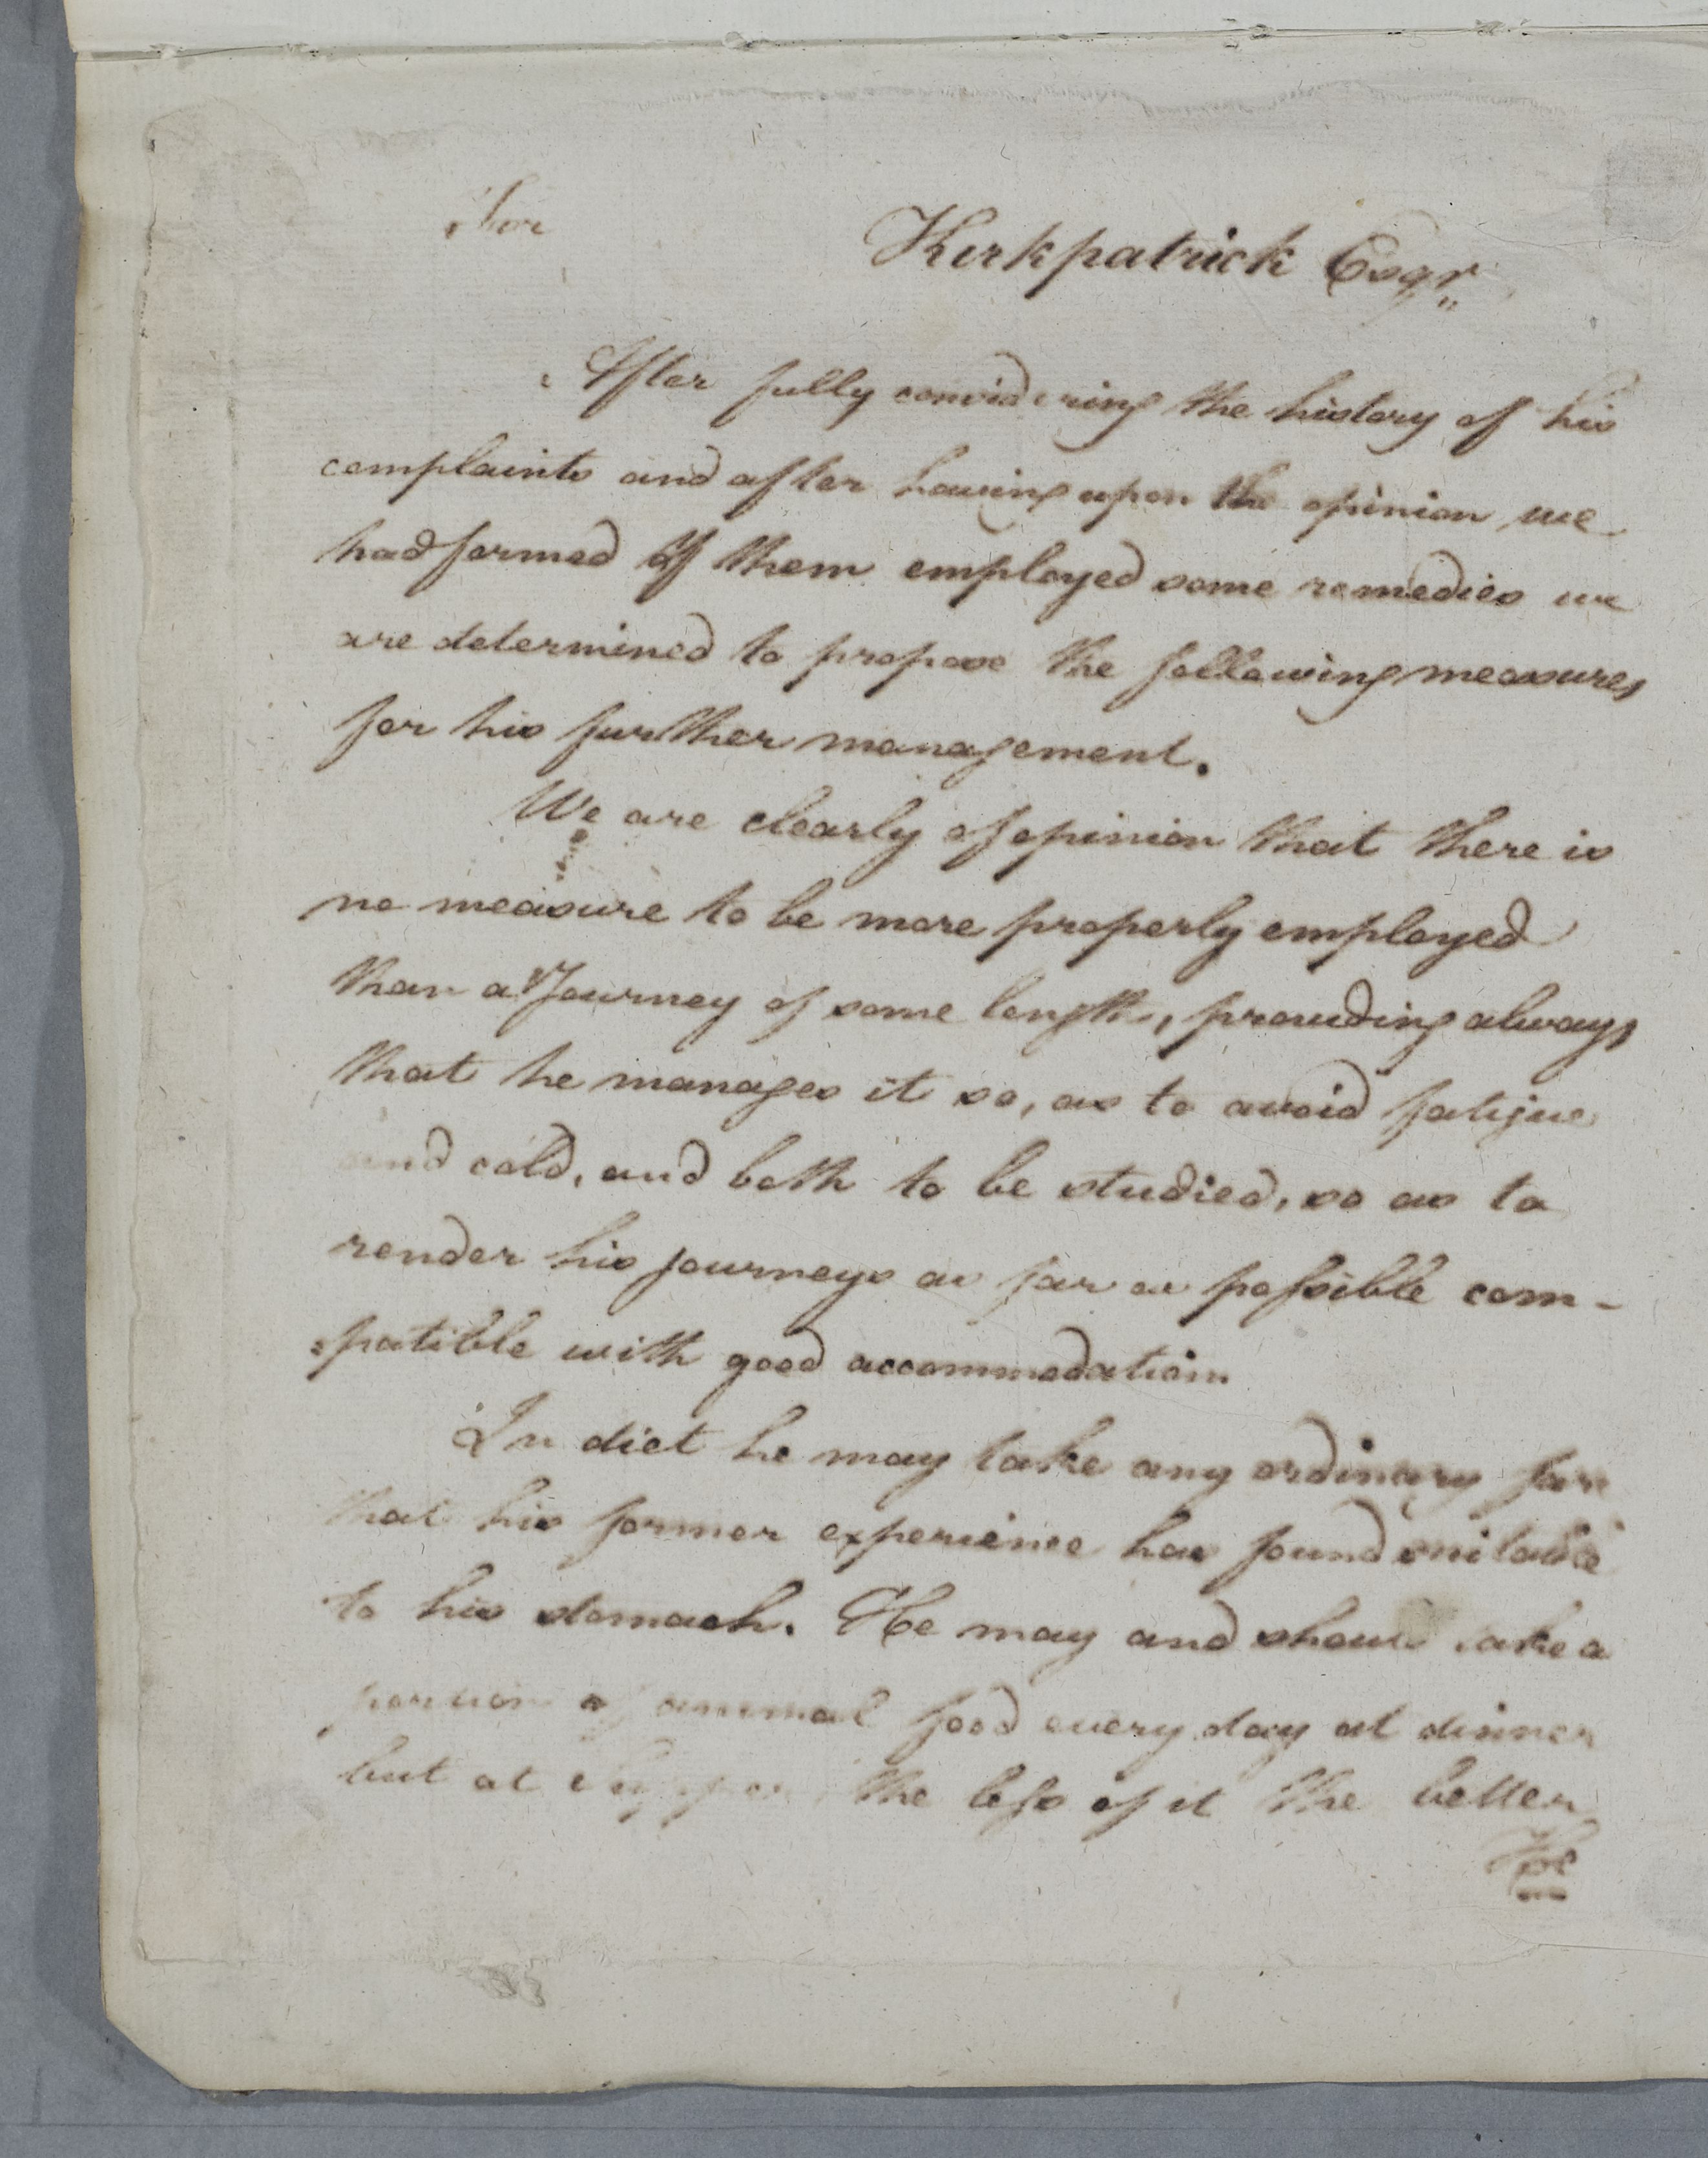 For
Kirkpatrick Esqr.
After fully considering the history of his
complaints and after having upon the opinion we
had formed of them employed some remedies we
are determined to propose the following measures
for his further management.
We are clearly of opinion that there is
no measure to be more properly employed
than a Journey of some length, provuding always
that he manages it so, as to avoid fatigue
and cold, and both to be studied, so as to
render his journeys as far as possible com-
=patible with good accommodation
In diet he may take any ordinary fare
that his former experience has found suitable
to his stomach. He may and should take a
portion of animal food every day at dinner
but at Supper, the less of it the better